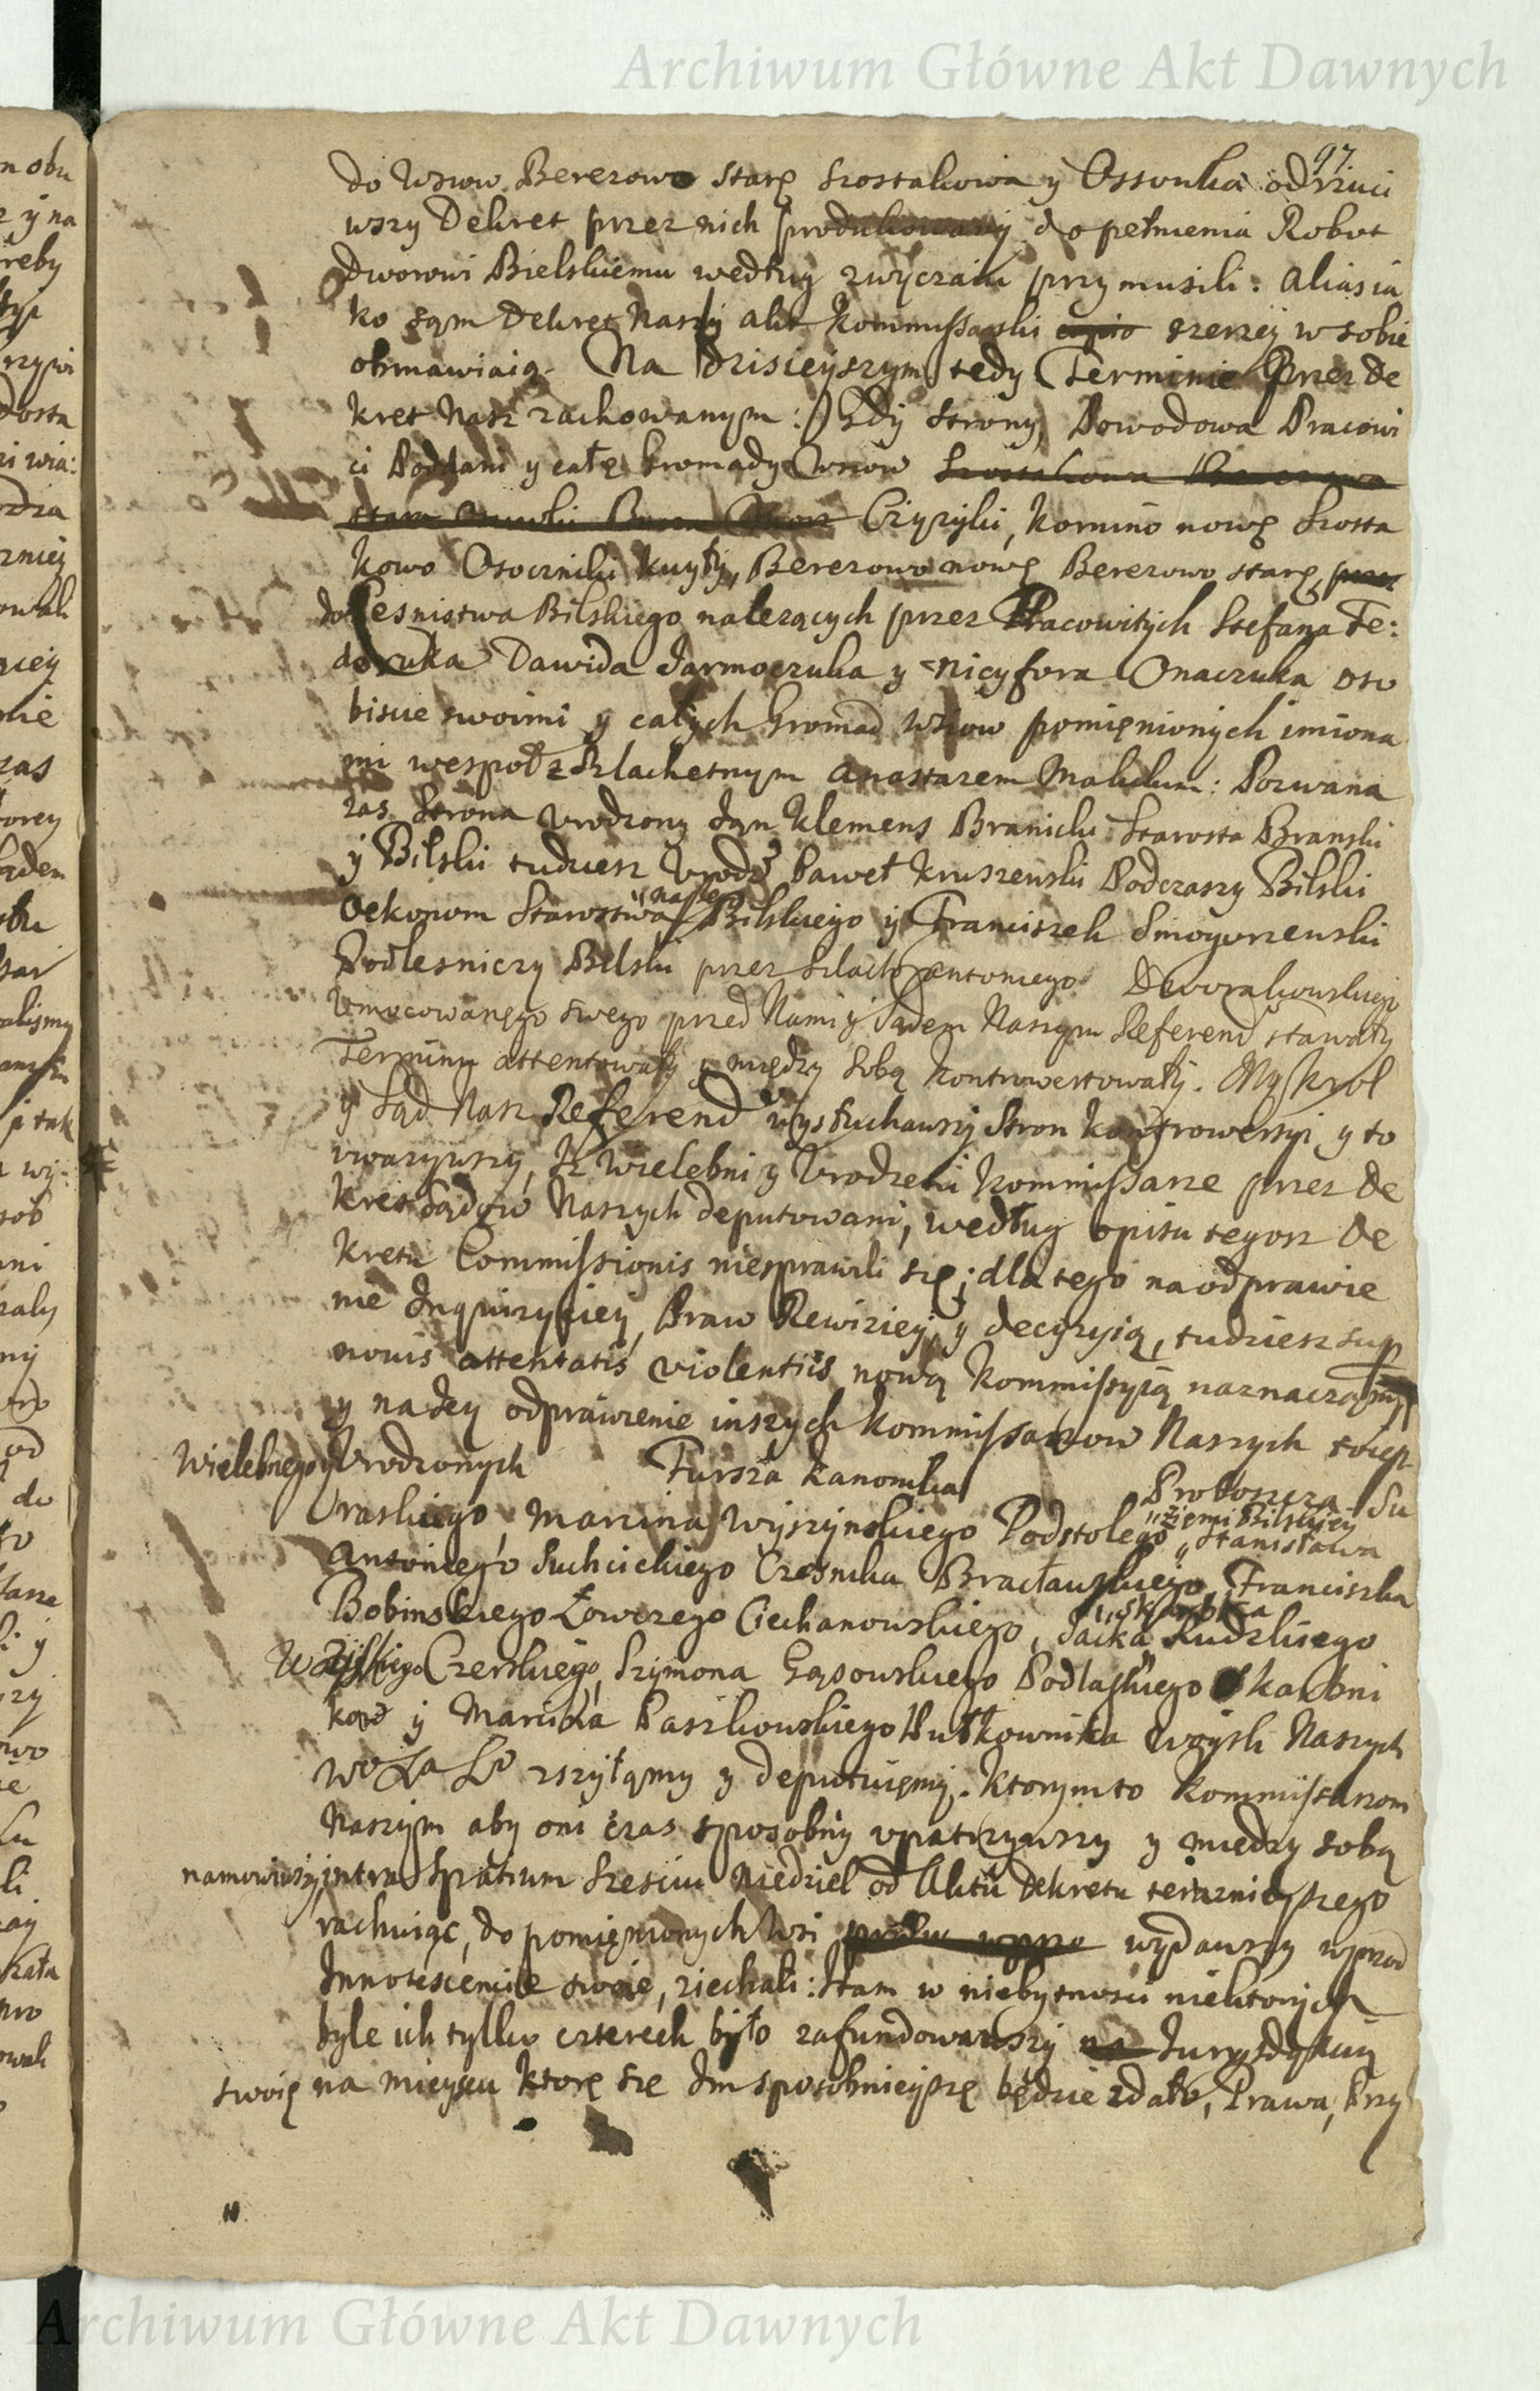 Archiwum Główne Akt Dawnych
97.
do Wsiow Berezowo Starę Szostakowa y Ossowka odrzuci
wszy Dekret przez nich produkowany do pełnienia Robot
Dworowi Bielskiemu według zwyczaiu przymusili: alias ia
ko sąm Dekret Nasz y akt Kommissarski szerzey w sobie
obmawiaią. Na dzisieyszym tedy Terminie Przez De
kret Nasz zachowanym: Gdy Strony, Powodowa Pracowi
ci Poddani y całę Gromady Wsiow Szostakowa Berezowa
stara Czyżyki, Komino nowę Szosta
kowo Osoczniki Kuyły, Berezowo nowę Berezowo starę, przez
do Lesnistwa Bilskiego nalezących przez Pracowitych Stefana Fe:
doruka Dawida Jarmoczuka y Nicyfora Onaczuka oso
biscie swoimi y całych Gromad Wsiow pomięnionych imiona
mi wespoł z Szlachetnym Anastazem Malidum: Pozwana
zas Strona Vrodzony Jąn Klemens Branicki Starosta Branski
y Bilski tudziesz Vrodz Paweł Kruszenski Podczaszy Bilski
Oekonom Starostwa "naszego Bilskiego y Franciszek Smogorzewski
Podlesniczy Bilski przez Szlach Antoniego Dworakowskiego
Vmocowanego swego przed Nami y Sądem Naszym Referend stawały
Terminu attentowały y między sobą kontrowertowały. My Krol
y Sąd Nasz Referend wysłuchawszy Stron kontrowersyi y to
vwazywszy, Iz Wielebni y Vrodzeni Kommissarze przez De
kret Sądow Naszych deputowani, według opisu tegosz De
kretu Commissionis niesprawili się; dla tego na odprawie
nie Inquizyciey, Praw Rewiziey, y decyzyią, tudziesz sup
novis attentatis violentiis nową Kommissyią naznaczamy
y na Jey odprawienie inszych Kommissarzow Naszych to iest
Wielebnego y Vrodzonych Fursza Kanonika Proboszcza Su
raskiego, Marcina Wyszynskiego Podstolego "ziemi Bilskiey "Stanisława
Antoniego Suchcickiego Czesnika Bracławskiego, Franciszka
Bobinskiego Łowczego Ciechanowskiego, Jacka "Skarbka Rudzkiego
Woyskiego Czerskiego, Szymona Gąsowskiego Podlaskiego Skarbni
kow y Marcina Paszkowskiego Pułkownika Woysk Naszych
Wo Xa Lo zsyłąmy y deputuięmy. Ktorymto Kommissarzom
Naszym aby oni czas sposobny vpatrzywszy y między sobą
namowiwszy, intra Spatium szesciu Niedziel od Aktu Dekretu teraznieyszego
rachuiąc, do pomięnionych Wsi wydawszy wprzod
Innotescencie swoie, ziechali: I tam w niebytnosci niektorych
byle ich tylko czterech było zafundowawszy na Jurysdykcią
swoię na mieyscu ktorę się Im sposobnieyszę będzie zdało, Prawa, Przy
Archiwum Główne Akt Dawnych